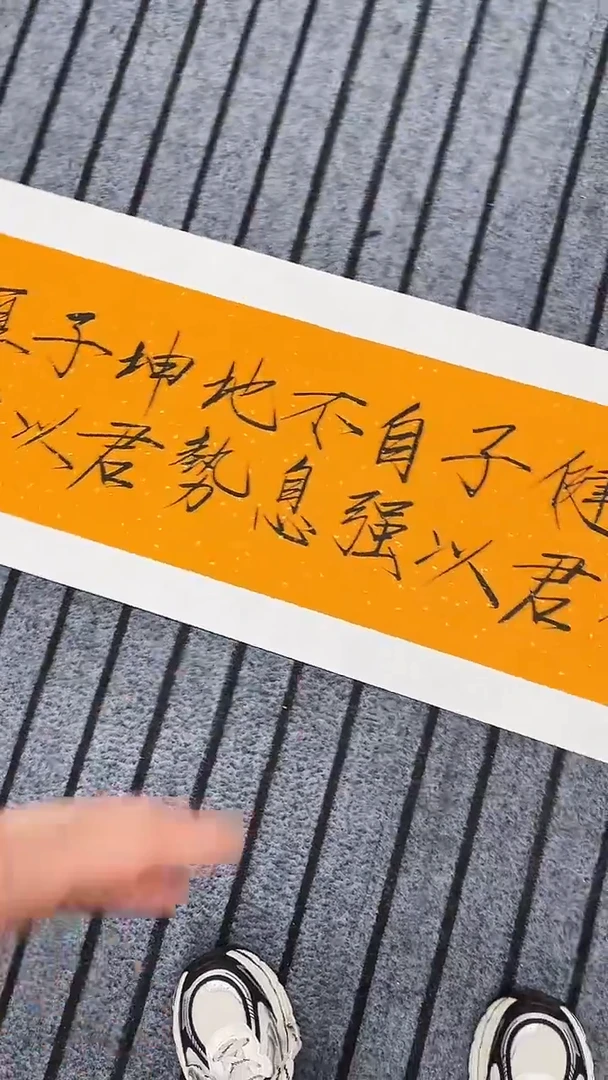 健君
子以
自强
不息
地勢
坤君
子以